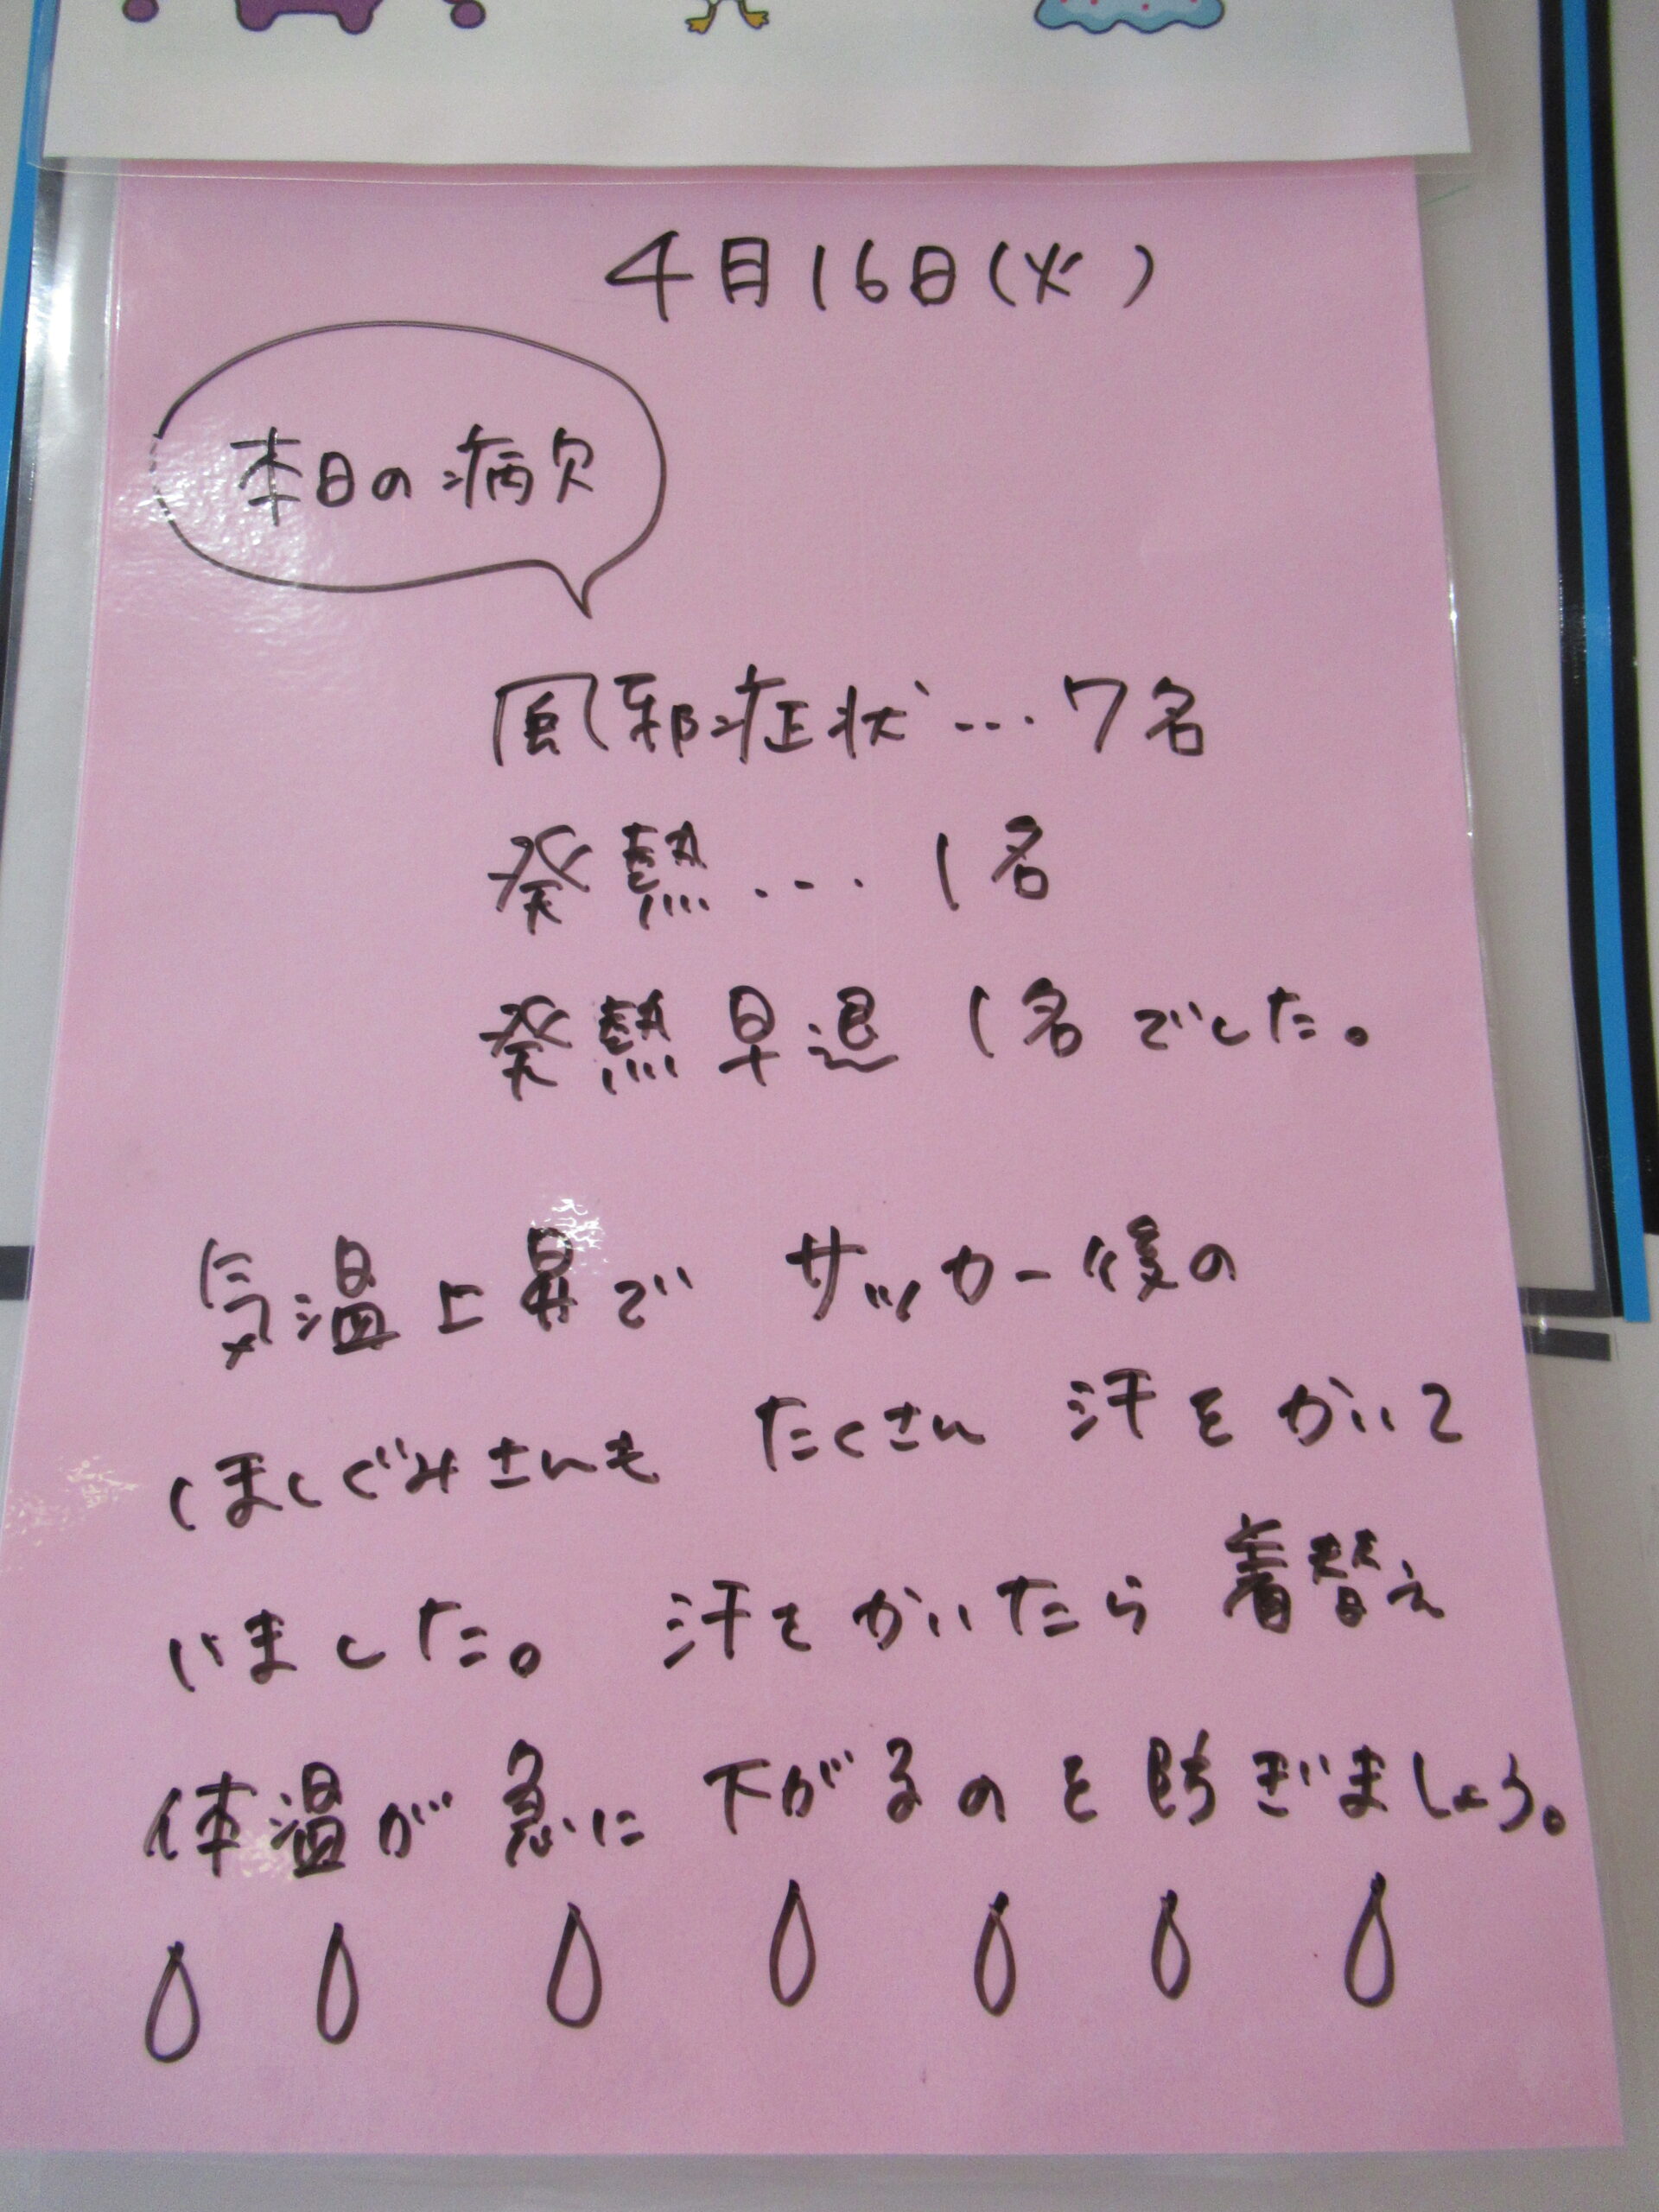 4月16日(火)
本日の病欠
風邪症状…7名
発熱…1名
発熱早退 1名でした。
気温上昇で サッカー後の
ほしぐみさんも たくさん 汗をかいて
いました。 汗をかいたら 着替え
体温が急に 下がるのを防ぎましょう。